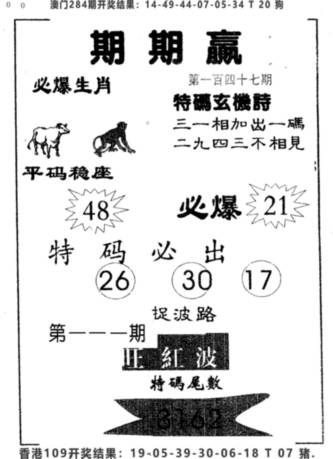 澳门284期开奖结果：14-49-44-07-05-34 T 20 狗
期期赢
第一百四十七期
必爆生肖
特碼玄機詩
三一相加出一碼
二九四三不相見
平码稳座
48
必爆
21
特码必出
26 30 17
捉波路
第一一一期
旺紅波
特碼尾數
6162
香港109开奖结果：19-05-39-30-06-18 T 07 猪.